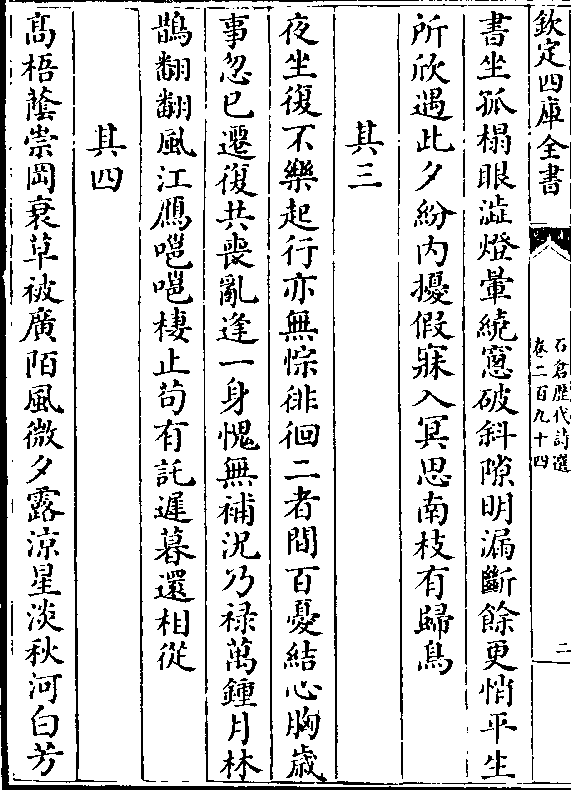 欽定四庫全書
石倉歴代詩選
卷二百九十四
二
書坐孤榻眼澁燈暈繞窓破斜隙明漏斷餘更悄平生
所欣遇此夕紛内擾假寐入冥思南枝有歸鳥
其三
夜坐復不樂起行亦無悰徘徊二者間百憂結心胸歳
事忽已遷復共喪亂逢一身愧無補况乃禄萬鍾月林
鵲翻翻風江鴈嗈嗈棲止苟有託遲暮還相從
其四
高梧蔭崇岡衰草被廣陌風微夕露凉星淡秋河白芳